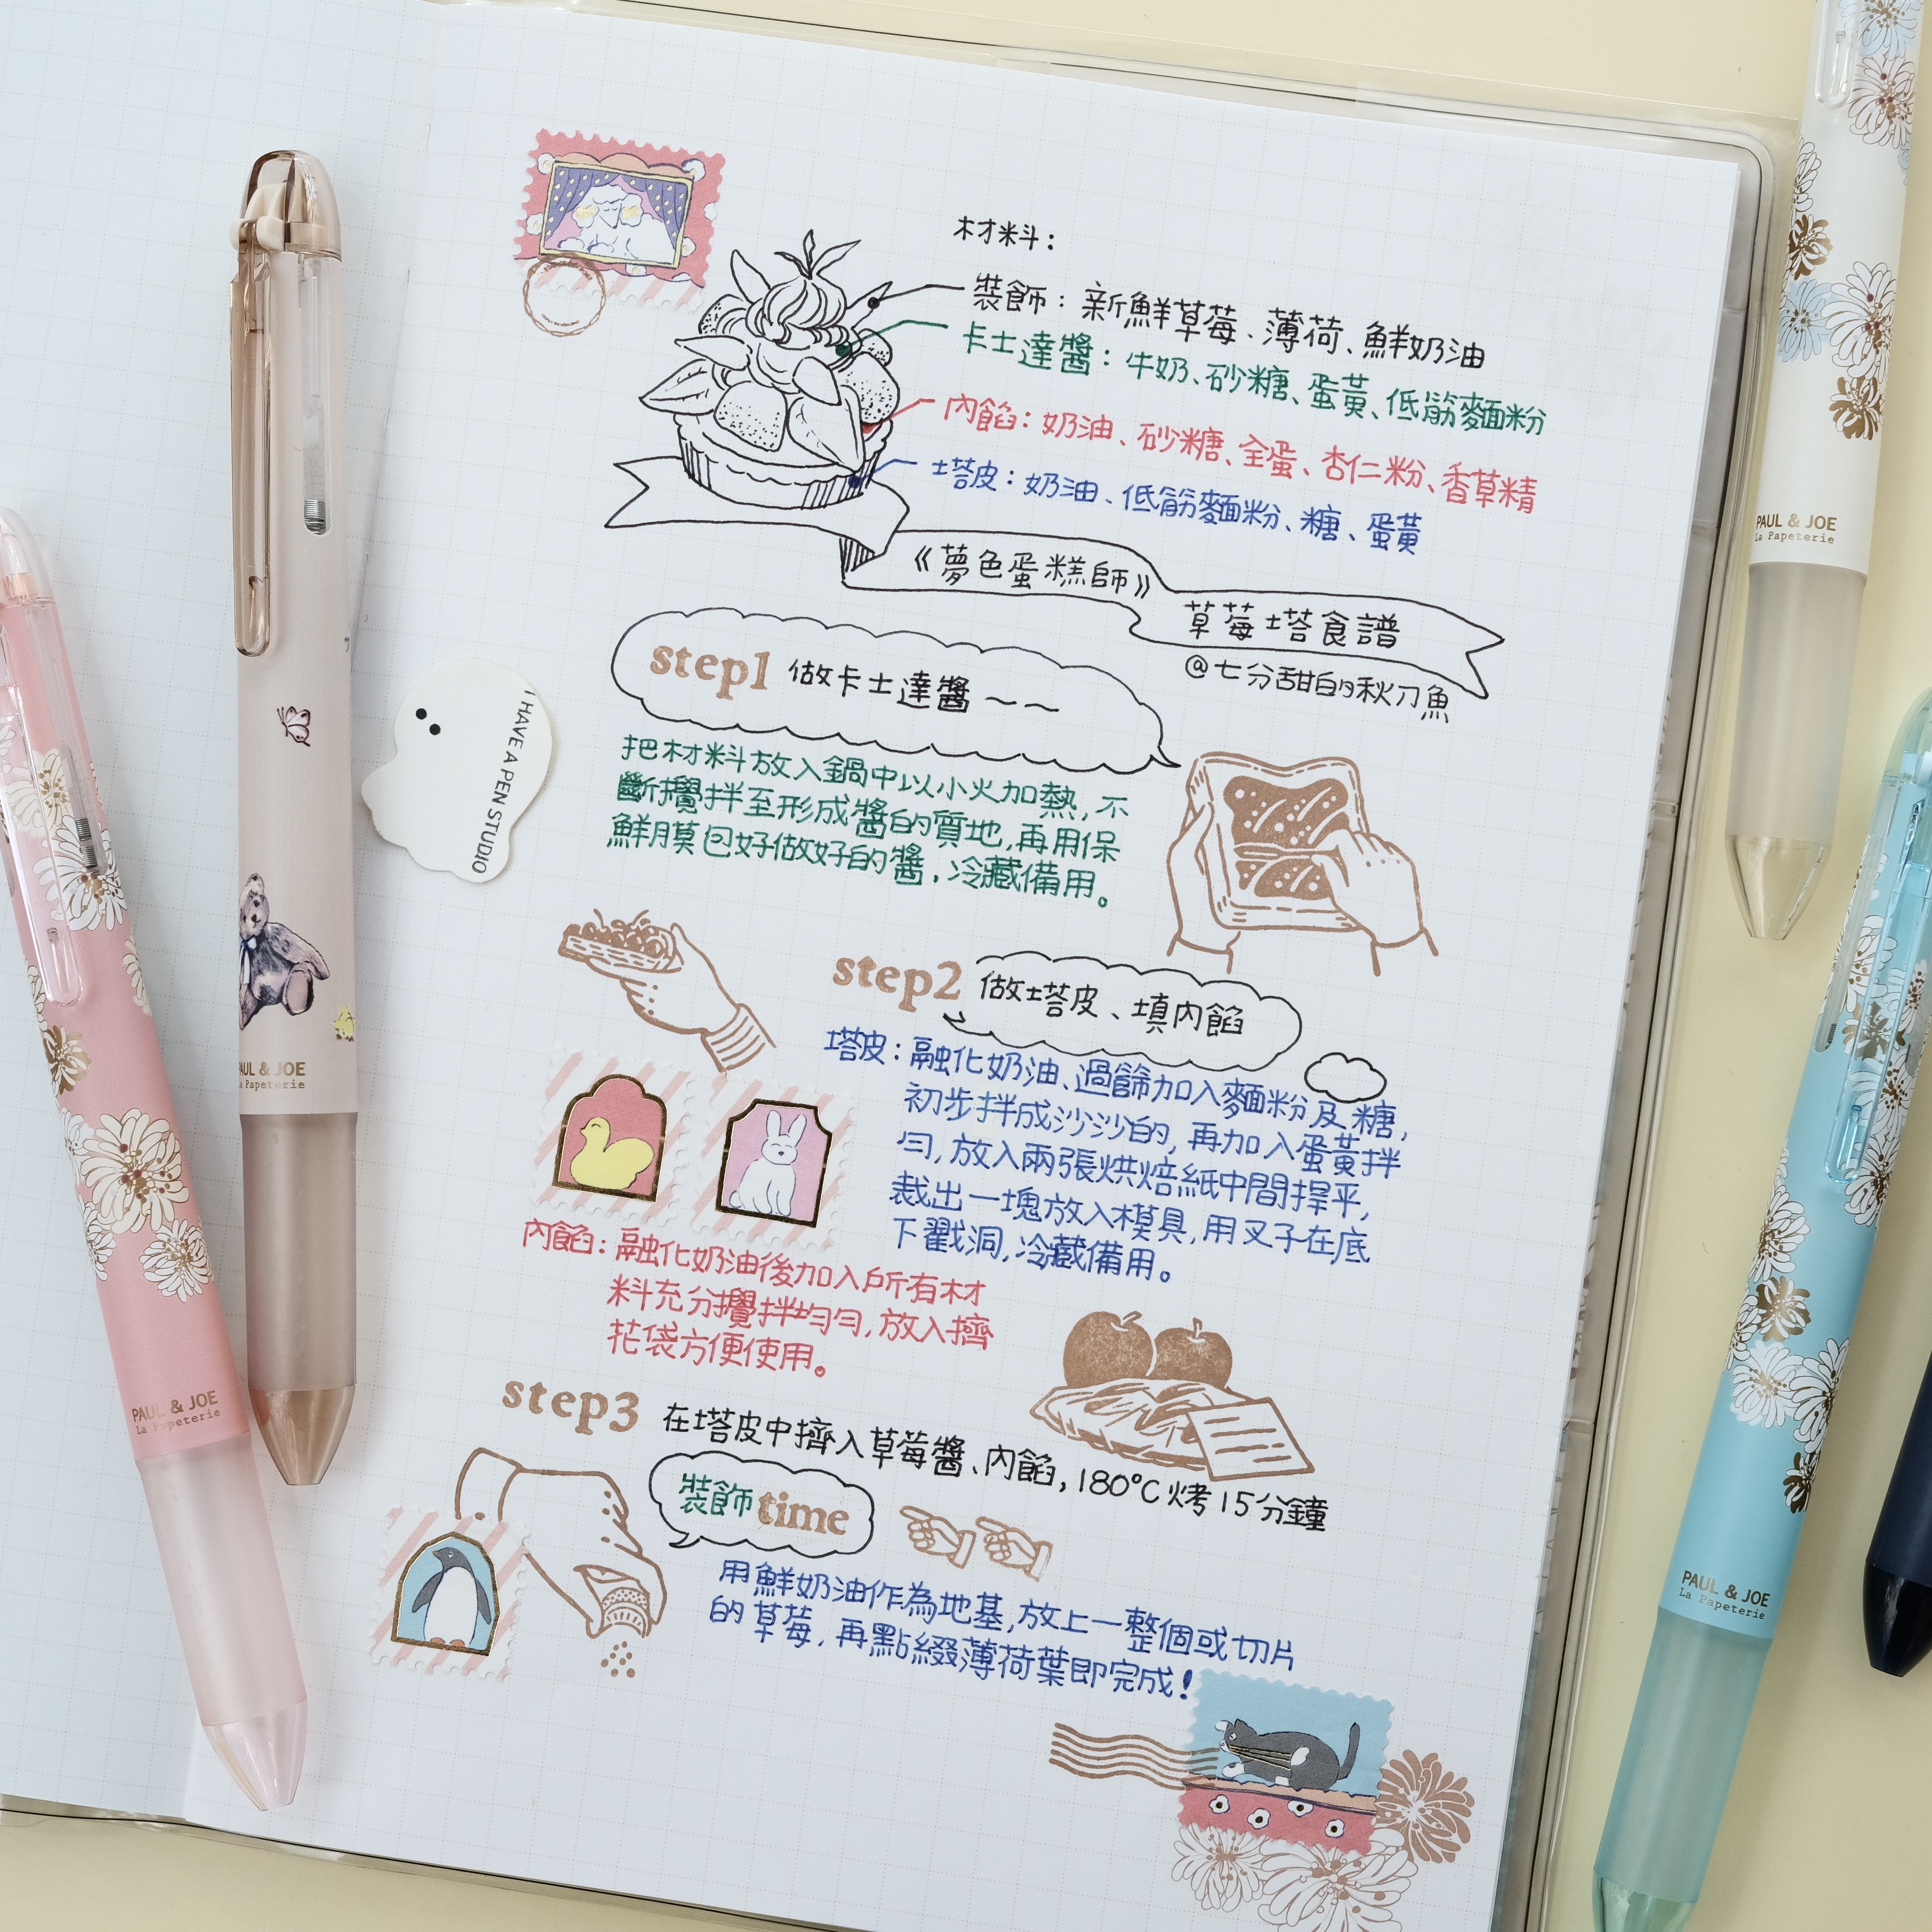 材料：
裝飾：新鮮草莓、薄荷、鮮奶油
卡士達醬：牛奶、砂糖、蛋黃、低筋麵粉
內餡：奶油、砂糖、全蛋、杏仁粉、香草精
塔皮：奶油、低筋麵粉、糖、蛋黃
《夢色蛋糕師》
草莓塔食譜
@七分甜的秋刀魚
step1 做卡士達醬～～
把材料放入鍋中以小火加熱，不
斷攪拌至形成醬的質地，再用保
鮮膜包好做好的醬，冷藏備用。
step2 做塔皮、填內餡
塔皮：融化奶油、過篩加入麵粉及糖，
初步拌成沙沙的，再加入蛋黃拌
勻，放入兩張烘焙紙中間擀平，
裁出一塊放入模具，用叉子在底
下戳洞，冷藏備用。
內餡：融化奶油後加入所有材
料充分攪拌均勻，放入擠
花袋方便使用。
step3 在塔皮中擠入草莓醬、內餡，180°C烤15分鐘
裝飾time
用鮮奶油作為地基，放上一整個或切片
的草莓，再點綴薄荷葉即完成！
I HAVE A PEN STUDIO
PAUL & JOE
La Papeterie
PAUL & JOE
La Papeterie
PAUL & JOE
La Papeterie
PAUL & JOE
La Papeterie